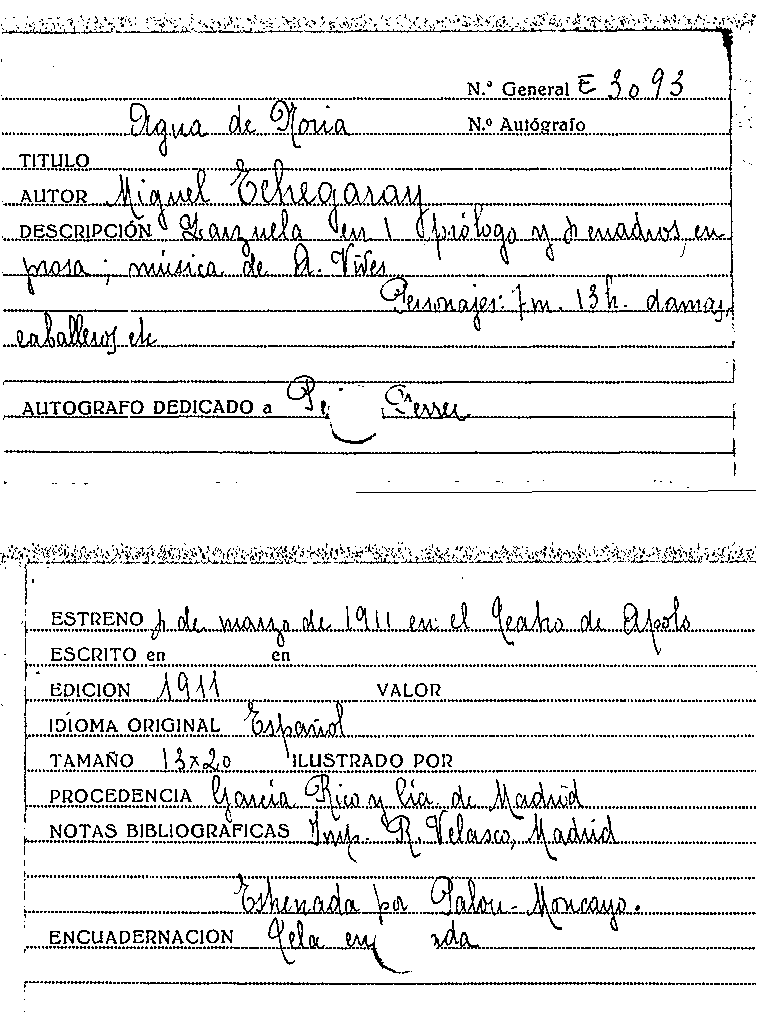 N.º General E 3093
Agua de Noria N.º Autógrafo
TITULO
AUTOR Miguel Echegaray
DESCRIPCIÓN Zarzuela en 1 prólogo y cuadros, en
prosa; música de A. Vives
Personajes: 7 m. 13 h. damas,
caballeros etc
AUTOGRAFO DEDICADO a
ESTRENO de marzo de 1911 en el Teatro de Apolo
ESCRITO en en
EDICION 1911 VALOR
IDIOMA ORIGINAL Español
TAMAÑO 13x20 ILUSTRADO POR
PROCEDENCIA García Rico y Cía de Madrid
NOTAS BIBLIOGRÁFICAS Imp. R. Velasco, Madrid
Estrenada por Palou-Moncayo.
ENCUADERNACION Tela